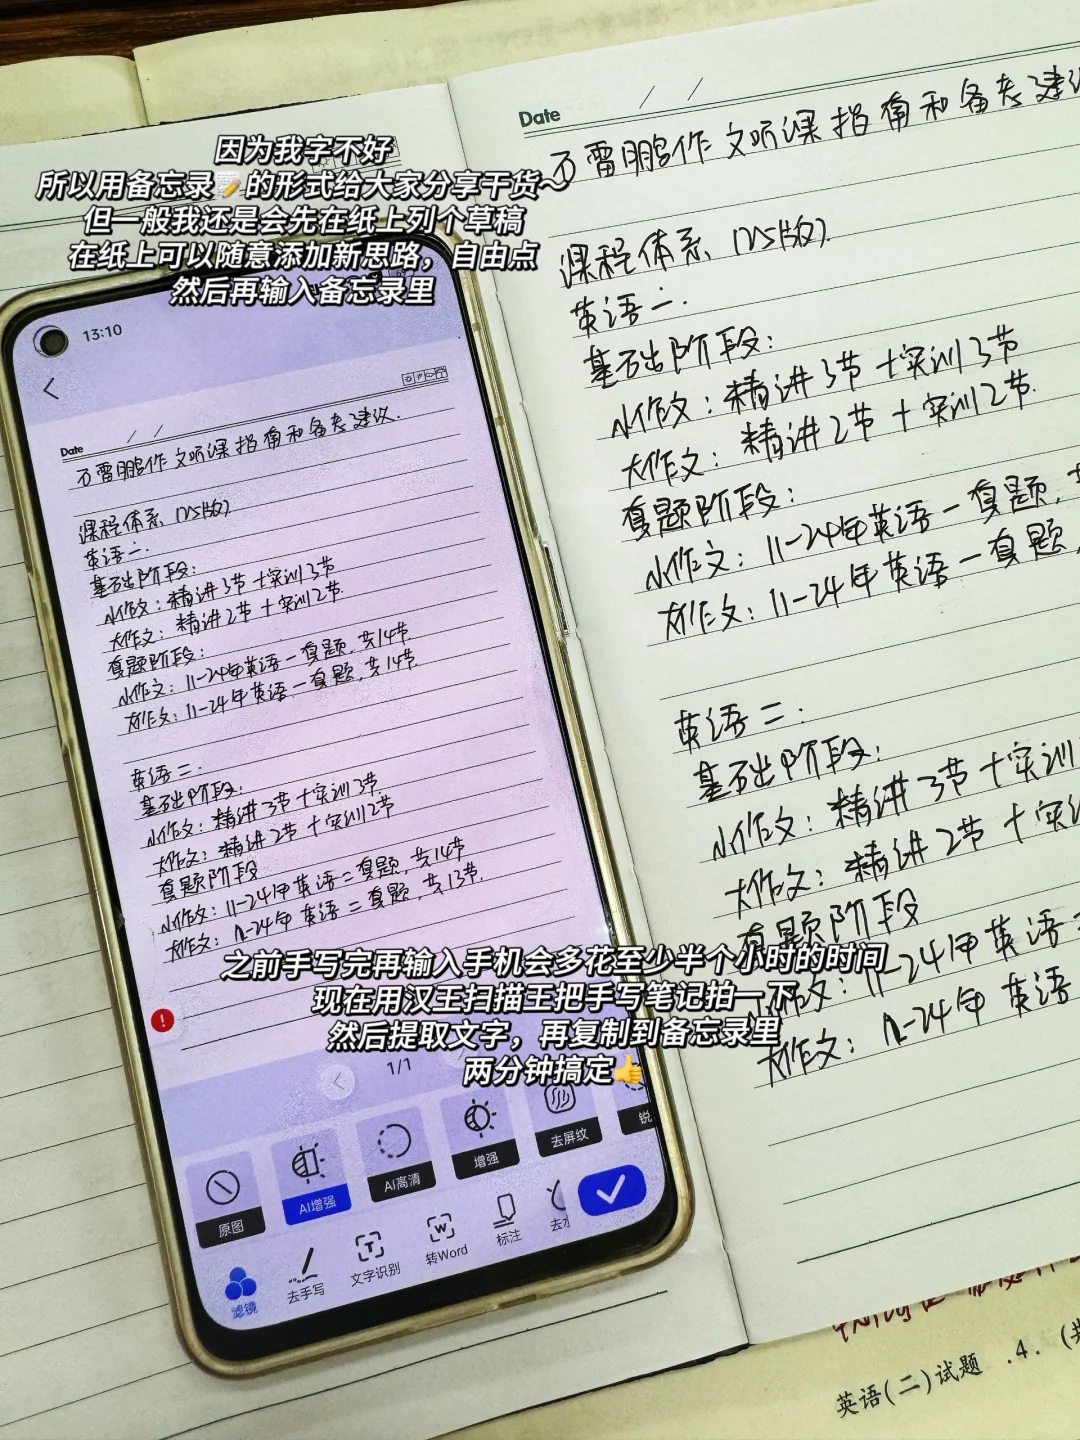 因为我字不好
所以用备忘录📝的形式给大家分享干货~
但一般我还是会先在纸上列个草稿
在纸上可以随意添加新思路，自由点
然后再输入备忘录里
13:10
Date
石雷鹏作文听课指南和备考建议.
课程体系 (25版)
英语一.
基础阶段:
小作文：精讲3节+实训3节
大作文：精讲2节+实训2节.
真题阶段:
小作文：11-24年英语一真题,共14节.
大作文：11-24年英语一真题,共14节.
英语二.
基础阶段:
小作文：精讲3节+实训3节.
大作文：精讲2节+实训2节
真题阶段
小作文：11-24年英语二真题,共14节
大作文：12-24年英语二真题,共13节.
1/1
原图
AI增强
AI高清
增强
去屏纹
锐
滤镜
去手写
文字识别
转Word
标注
去水
Date
石雷鹏作文听课指南和备考建议
课程体系 (25版)
英语一.
基础阶段:
小作文：精讲3节+实训3节
大作文：精讲2节+实训2节.
真题阶段:
小作文：11-24年英语一真题,共
大作文：11-24年英语一真题,
英语二.
基础阶段:
小作文：精讲3节+实训
大作文：精讲2节+实
真题阶段
小作文：11-24年英语
大作文：12-24年英语
之前手写完再输入手机会多花至少半个小时的时间
现在用汉王扫描王把手写笔记拍一下
然后提取文字，再复制到备忘录里
两分钟搞定👍
英语(二)试题 .4. (共